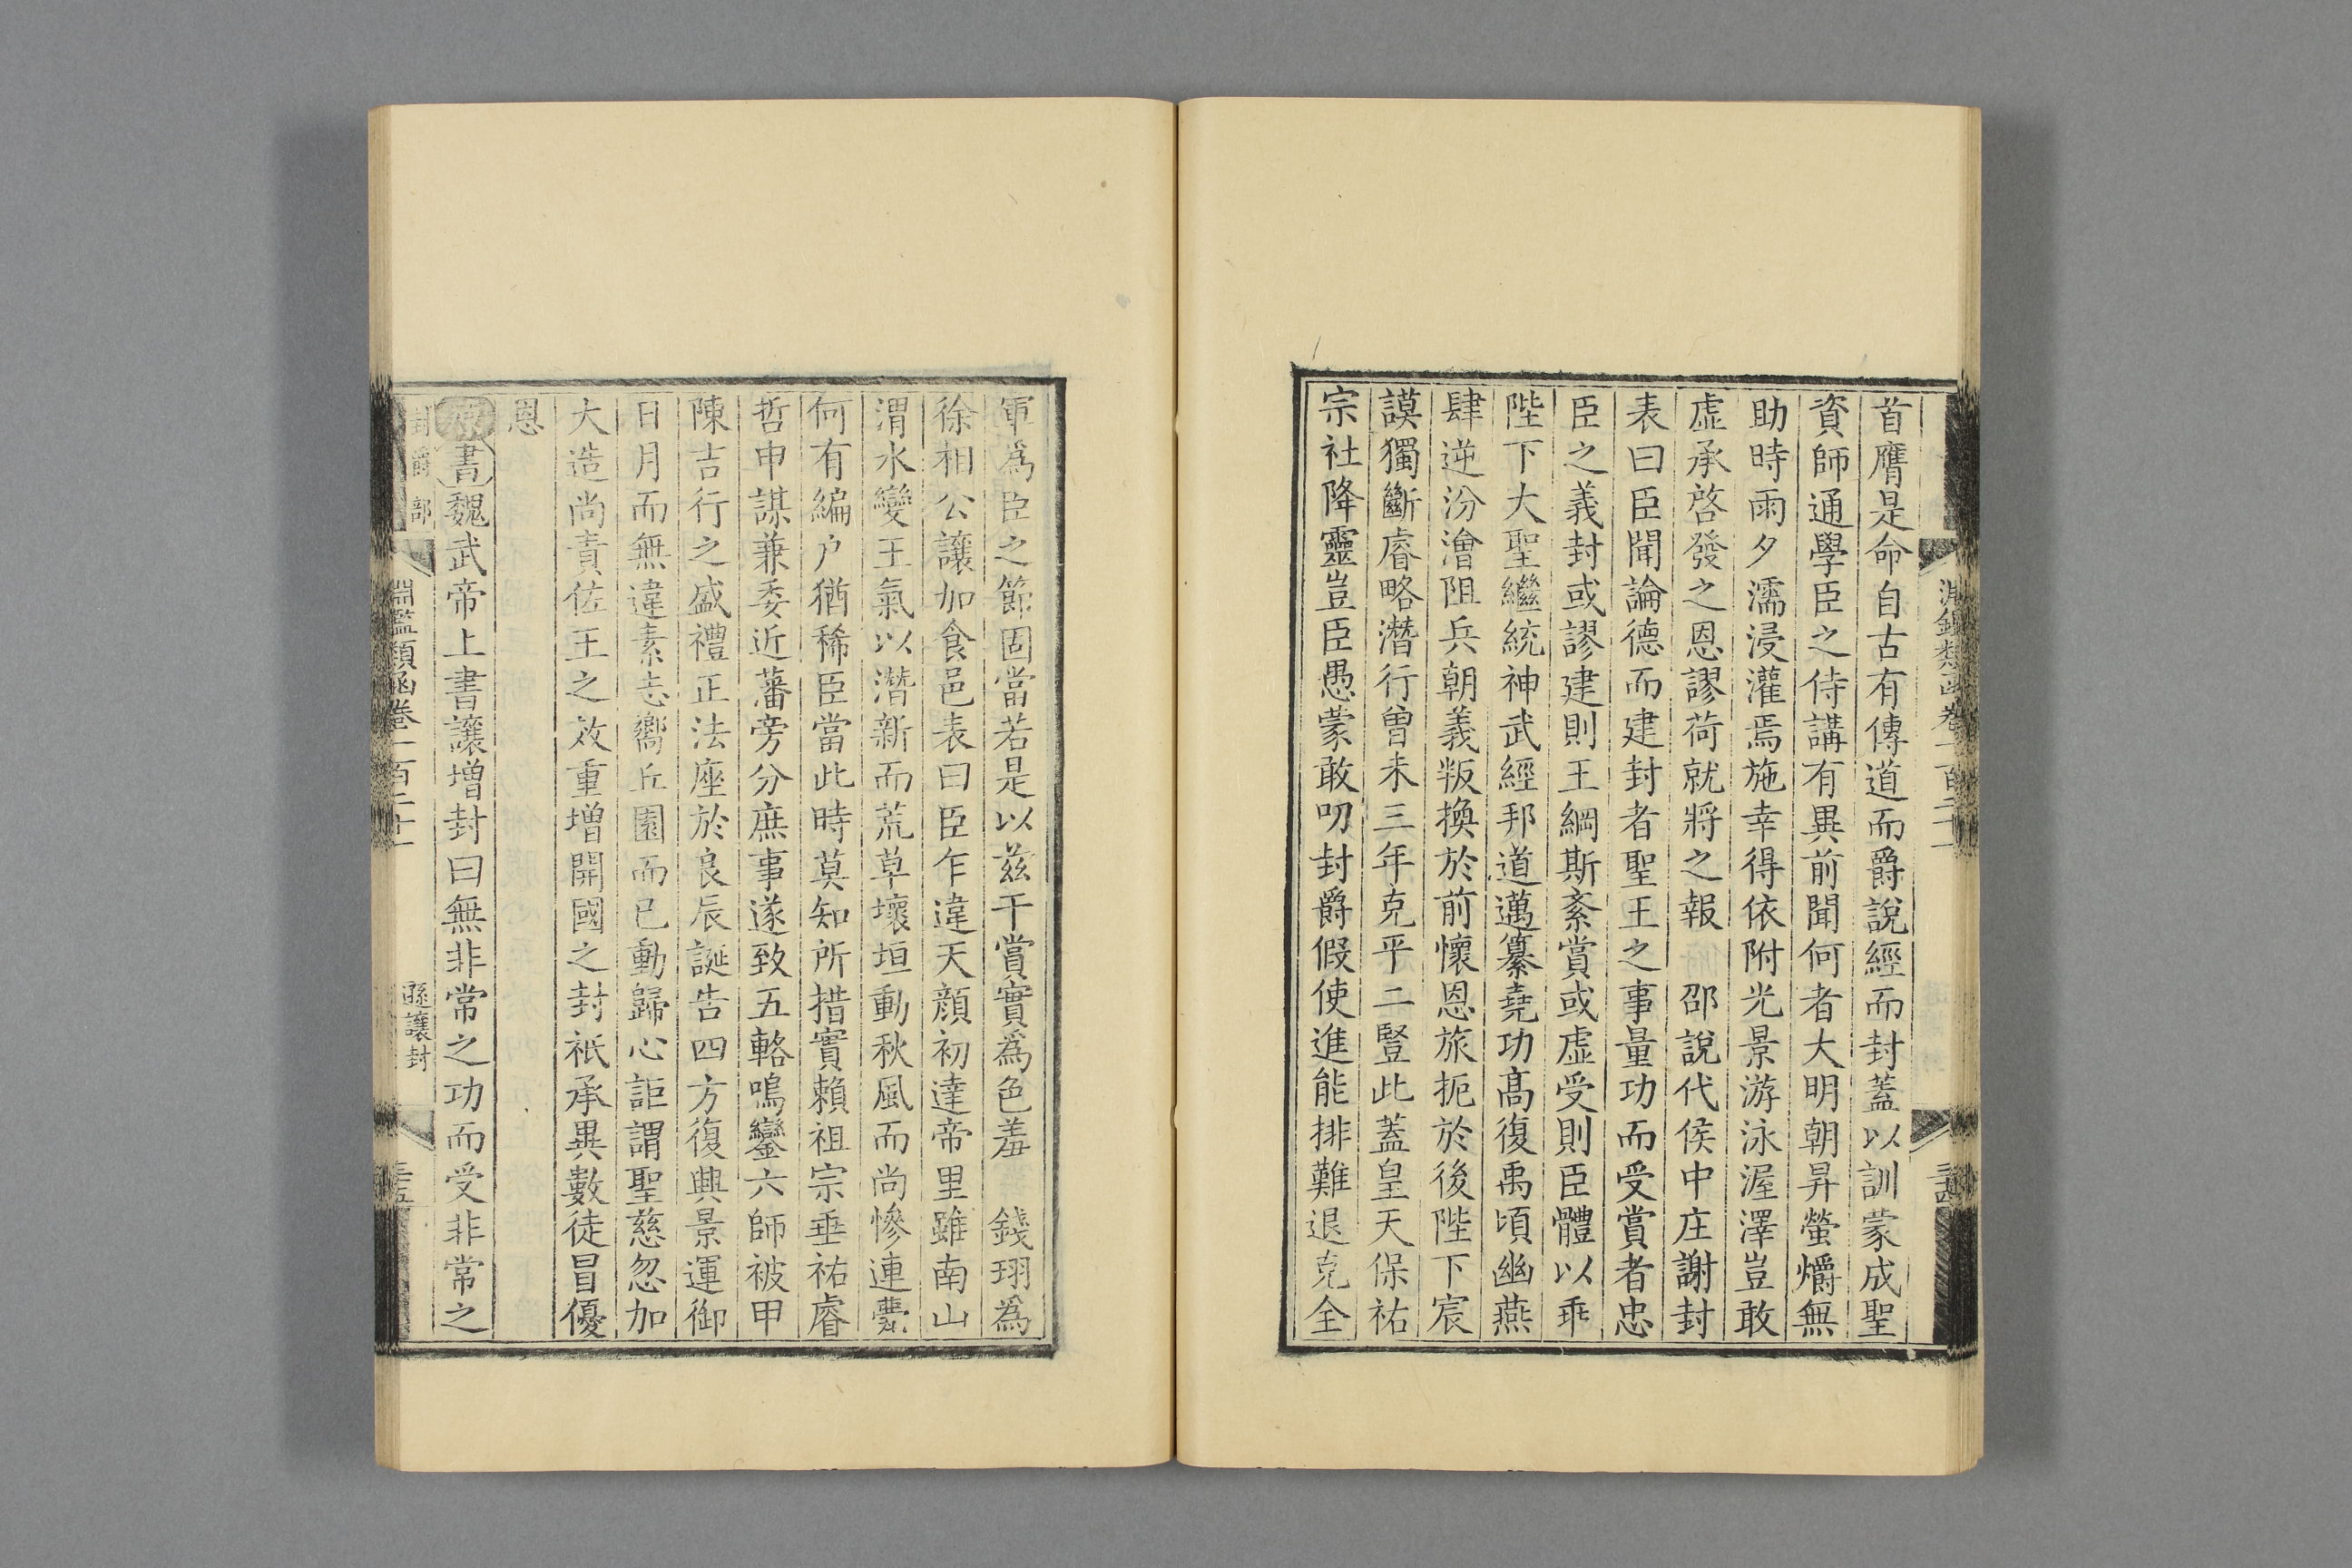 淵鑑類函卷一百二十一
首膺是命自古有傳道而爵說經而封蓋以訓蒙成聖
資師通學臣之侍講有異前聞何者大明朝昇螢爝無
助時雨夕濡浸灌焉施幸得依附光景游泳渥澤豈敢
虛承啓發之恩謬荷就將之報　邵說代侯中庄謝封
表曰臣聞論德而建封者聖王之事量功而受賞者忠
臣之義封或謬建則王綱斯紊賞或虛受則臣體以乖
陛下大聖繼統神武經邦道邁纂堯功高復禹頃幽燕
肆逆汾澮阻兵朝義叛換於前懷恩旅拒於後陛下宸
謨獨斷睿略潛行曾未三年克平二豎此蓋皇天保祐
宗社降靈豈臣愚蒙敢叨封爵假使進能排難退克全
軍爲臣之節固當若是以茲干賞實爲色羞　錢珝爲
徐相公讓加食邑表曰臣乍違天顔初達帝里雖南山
渭水變王氣以潛新而荒草壞垣動秋風而尚慘連甍
何有編户猶稀臣當此時莫知所措實賴祖宗垂祐睿
哲申謀兼委近藩旁分庶事遂致五輅鳴鑾六師被甲
陳吉行之盛禮正法座於良辰誕告四方復興景運御
日月而無違素志嚮丘園而已動歸心詎謂聖慈忽加
大造尚責佐王之效重增開國之封祇承異數徒冒優
恩
書魏武帝上書讓增封曰無非常之功而受非常之
封爵部
淵鑑類函卷一百二十一
遜讓封